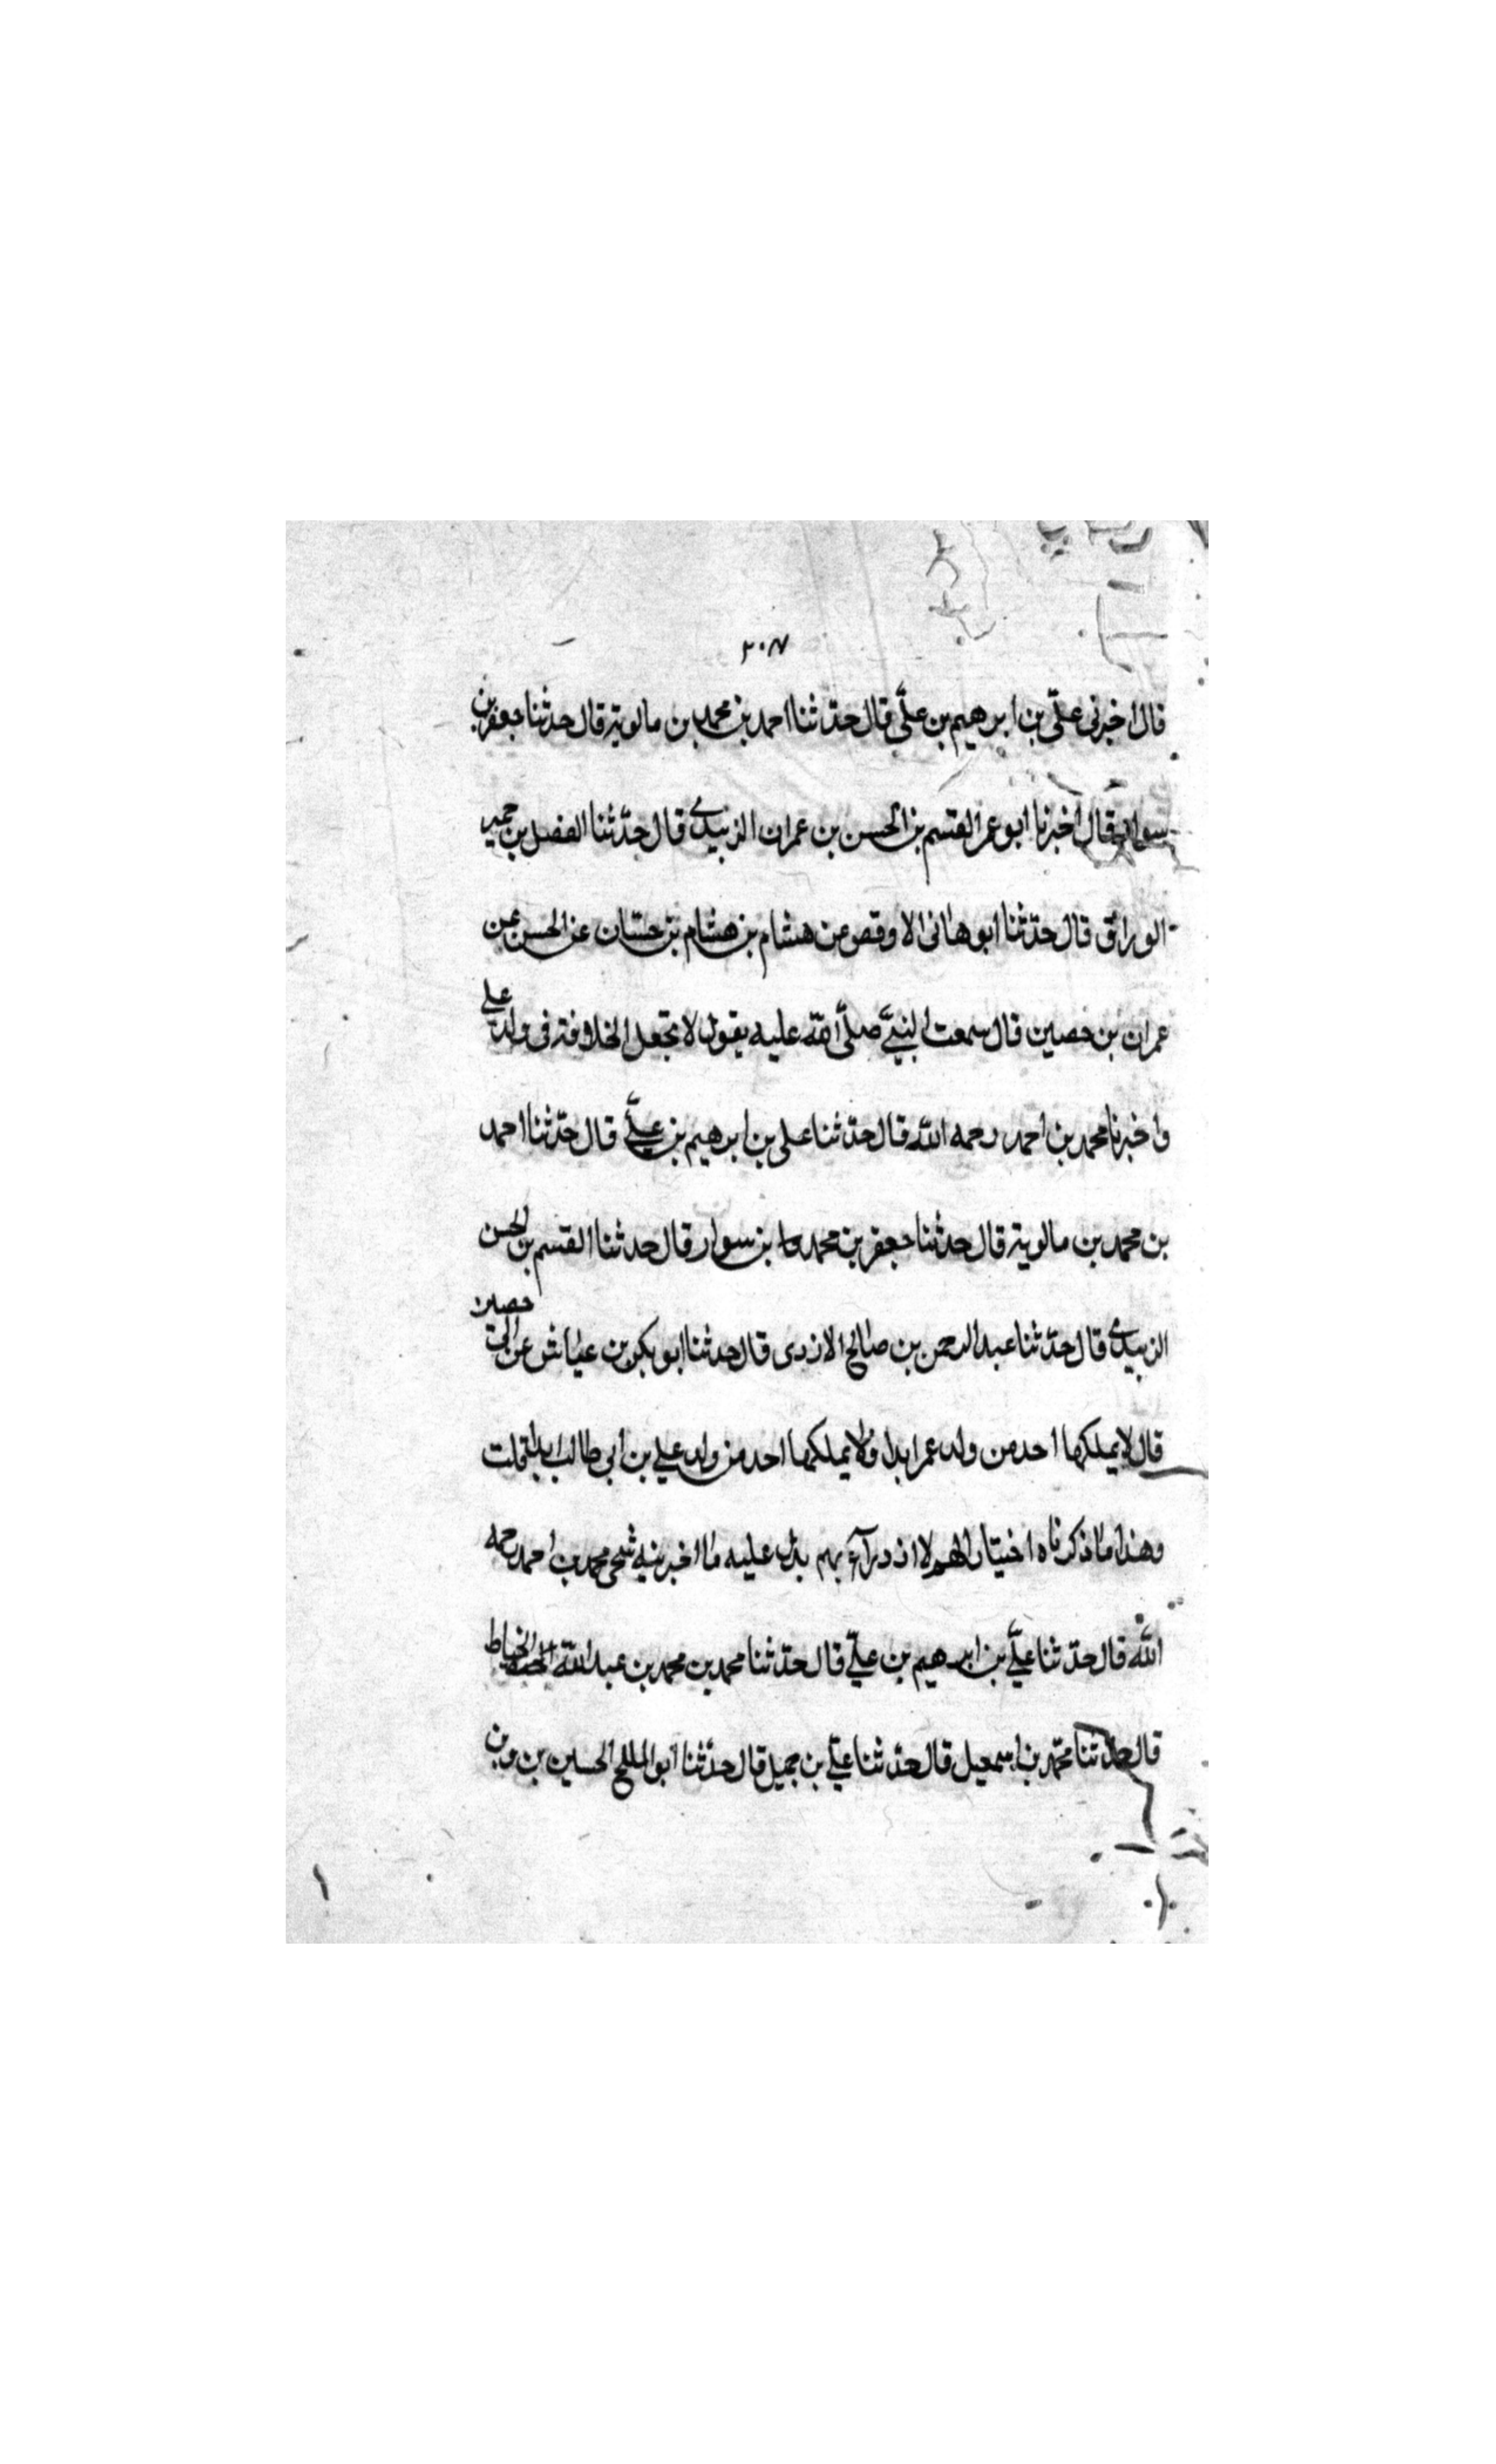 ٣٠٧
قال اخبرنى علّى بن ابرهيم بن علّى قال حدّثنا احمد بن محمد بن مالوية قال حدثنا جعفر بن
سوار قال اخبرنا ابو عمر القسم بن الحسن بن عمران الزبيدى قال حدّثنا الفضل بن حميد
الوراق قال حدّثنا ابو هانى الاوقص عن هشام بن هشام بن حسّان عن الحسن عن
عمران بن حصين قال سمعت النبىّ صلّى الله عليه يقول لا تجعل الخلافة فى ولد على
واخبرنا محمد بن احمد رحمه الله قال حدّثنا على بن ابرهيم بن علىّ قال حدّثنا احمد
بن محمد بن مالوية قال حدثنا جعفر بن محمد بن سوار قال حدثنا القسم بن الحسن
الزبيدى قال حدّثنا عبد الرحمن بن صالح الازدى قال حدثنا ابو بكر بن عياش عن ابى حصين
قال لا يملكها احد من ولد عمر ابدا ولا يملكها احد من ولد على بن ابى طالب ابدا قلت
وهذا ما ذكرناه اختيار الله لا ازدرآء بهم يدل عليه ما اخبرنيه شيخى محمد بن احمد رحمه
الله قال حدّثنا علىّ بن ابرهيم بن علىّ قال حدّثنا محمد بن محمد بن عبد الله الخياط
قال حدّثنا محمّد بن اسمعيل قال حدّثنا علىّ بن جميل قال حدّثنا ابو المليح الحسين بن